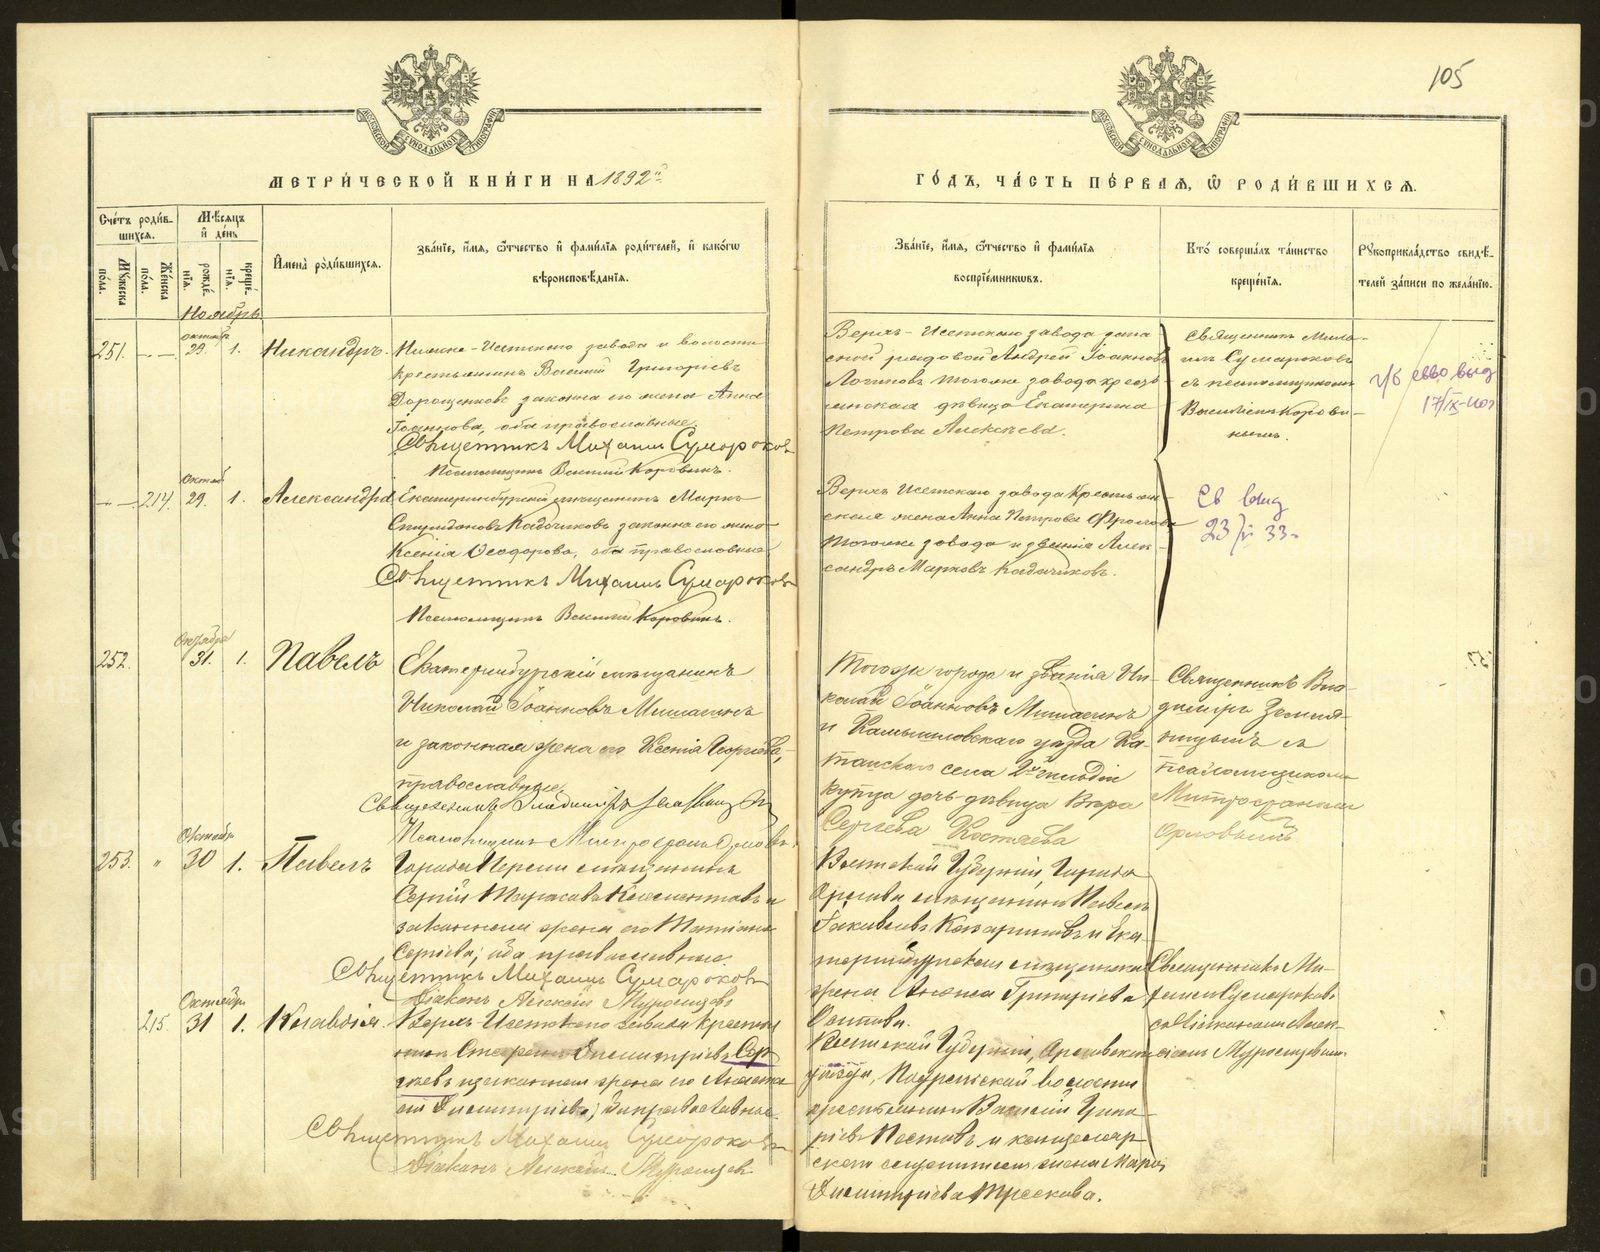 105
МЕТРИ́ЧЕСКОЙ КНИ́ГИ НА 1892й
ГО́ДЪ, ЧА́СТЬ ПЕ́РВАЯ, Ѿ РОДИ́ВШИХСЯ.
Сче́тъ роди́в-
шихся.
Мꙋ́жеска по́ла.
Же́нска по́ла.
Мѣ́сяцъ и де́нь
рожде́-нія.
креще́-нія.
Имена̀ роди́вшихся.
Зва́ніе, и́мя, ѻ́тчество и фами́лія роди́телей, и како́гѡ
вѣроисповѣ́данія.
Зва́ніе, и́мя, ѻ́тчество и фами́лія
воспріе́мникѡвъ.
Кто̀ соверша́лъ та́инство
креще́нія.
Рꙋкоприкла́дство свидѣ́-
телей за́писи по жела́нію.
Ноябрь
251.
октяб
29. 1.
Никандръ.
Нижне-Исетскаго завода и волости
крестьянинъ Василій Григоріевъ
Дорощенковъ законная его жена Анна
Іоаннова, оба православные.
Священникъ Михаилъ Сумароковъ
Псаломщикъ Василій Коровинъ.
Верхъ-Исетскаго завода запа
сной рядовой Андрей Іоанновъ
Логиновъ тогоже завода кресть-
янская дѣвица Екатерина
Петрова Алексѣева.
Священникъ Миха-
илъ Сумароковъ
съ псаломщикомъ
Василіемъ Корови-
нымъ.
выд
17/IX
214.
Октяб
29. 1.
Александра
Екатеринбургскій мѣщанинъ Маркъ
Спиридоновъ Кадочиковъ законная его жена
Ксенія Ѳеодорова, оба православные
Священникъ Михаилъ Сумароковъ
Псаломщикъ Василій Коровинъ.
Верхъ Исетскаго завода Крестьян-
ская жена Анна Петрова Фролова
тогоже завода и званія Алек-
сандръ Марковъ Кадочиковъ.
Св выд
23/V 33
252.
Октября
31. 1.
Павелъ
Екатеринбургскій мѣщанинъ
Николай Іоанновъ Мишагинъ
и законная жена его Ксенія Георгіева,
православные.
Священникъ Владиміръ Земляницынъ
Псаломщикъ Митрофанъ Орловъ
Тогоже города и званія Ни-
колай Іоанновъ Мишагинъ
и Камышловскаго уѣзда Ка-
тайскаго села 2й гильдіи
купца дочь дѣвица Вѣра
Сергѣева
Священникъ Вла-
диміръ Земля-
ницынъ съ
псаломщикомъ
Митрофаномъ
Орловымъ
253. "
Октябр
30 1.
Павелъ
Города Перми мѣщанинъ
Сергій Тарасовъ Климентовъ и
законная жена его Татіана
Сергѣева, оба православные.
Священникъ Михаилъ Сумароковъ
Діаконъ Алексій Мурзищевъ
Вятской Губерніи, Города
Орлова мѣщанинъ Павелъ
Іаковлевъ и Ека-
теринбургская мѣщанская
жена Григоріева
Священникъ Ми-
хаилъ Сумароковъ
съ Діакономъ Алек-
сіемъ
215.
Октябр
31 1.
Клавдія.
Верхъ-Исетскаго завода крестья
нинъ Димитріевъ Сер
гѣевъ и законная жена его
Димитріева, оба православные.
Священникъ Михаилъ Сумароковъ
Діаконъ Алексій Мурзищевъ
Вятской Губерніи, Орловскаго
уѣзда, волости
крестьянинъ Василій Григо-
ріевъ и канцеляр
скаго служителя жена Марія
Димитріева Трескова.